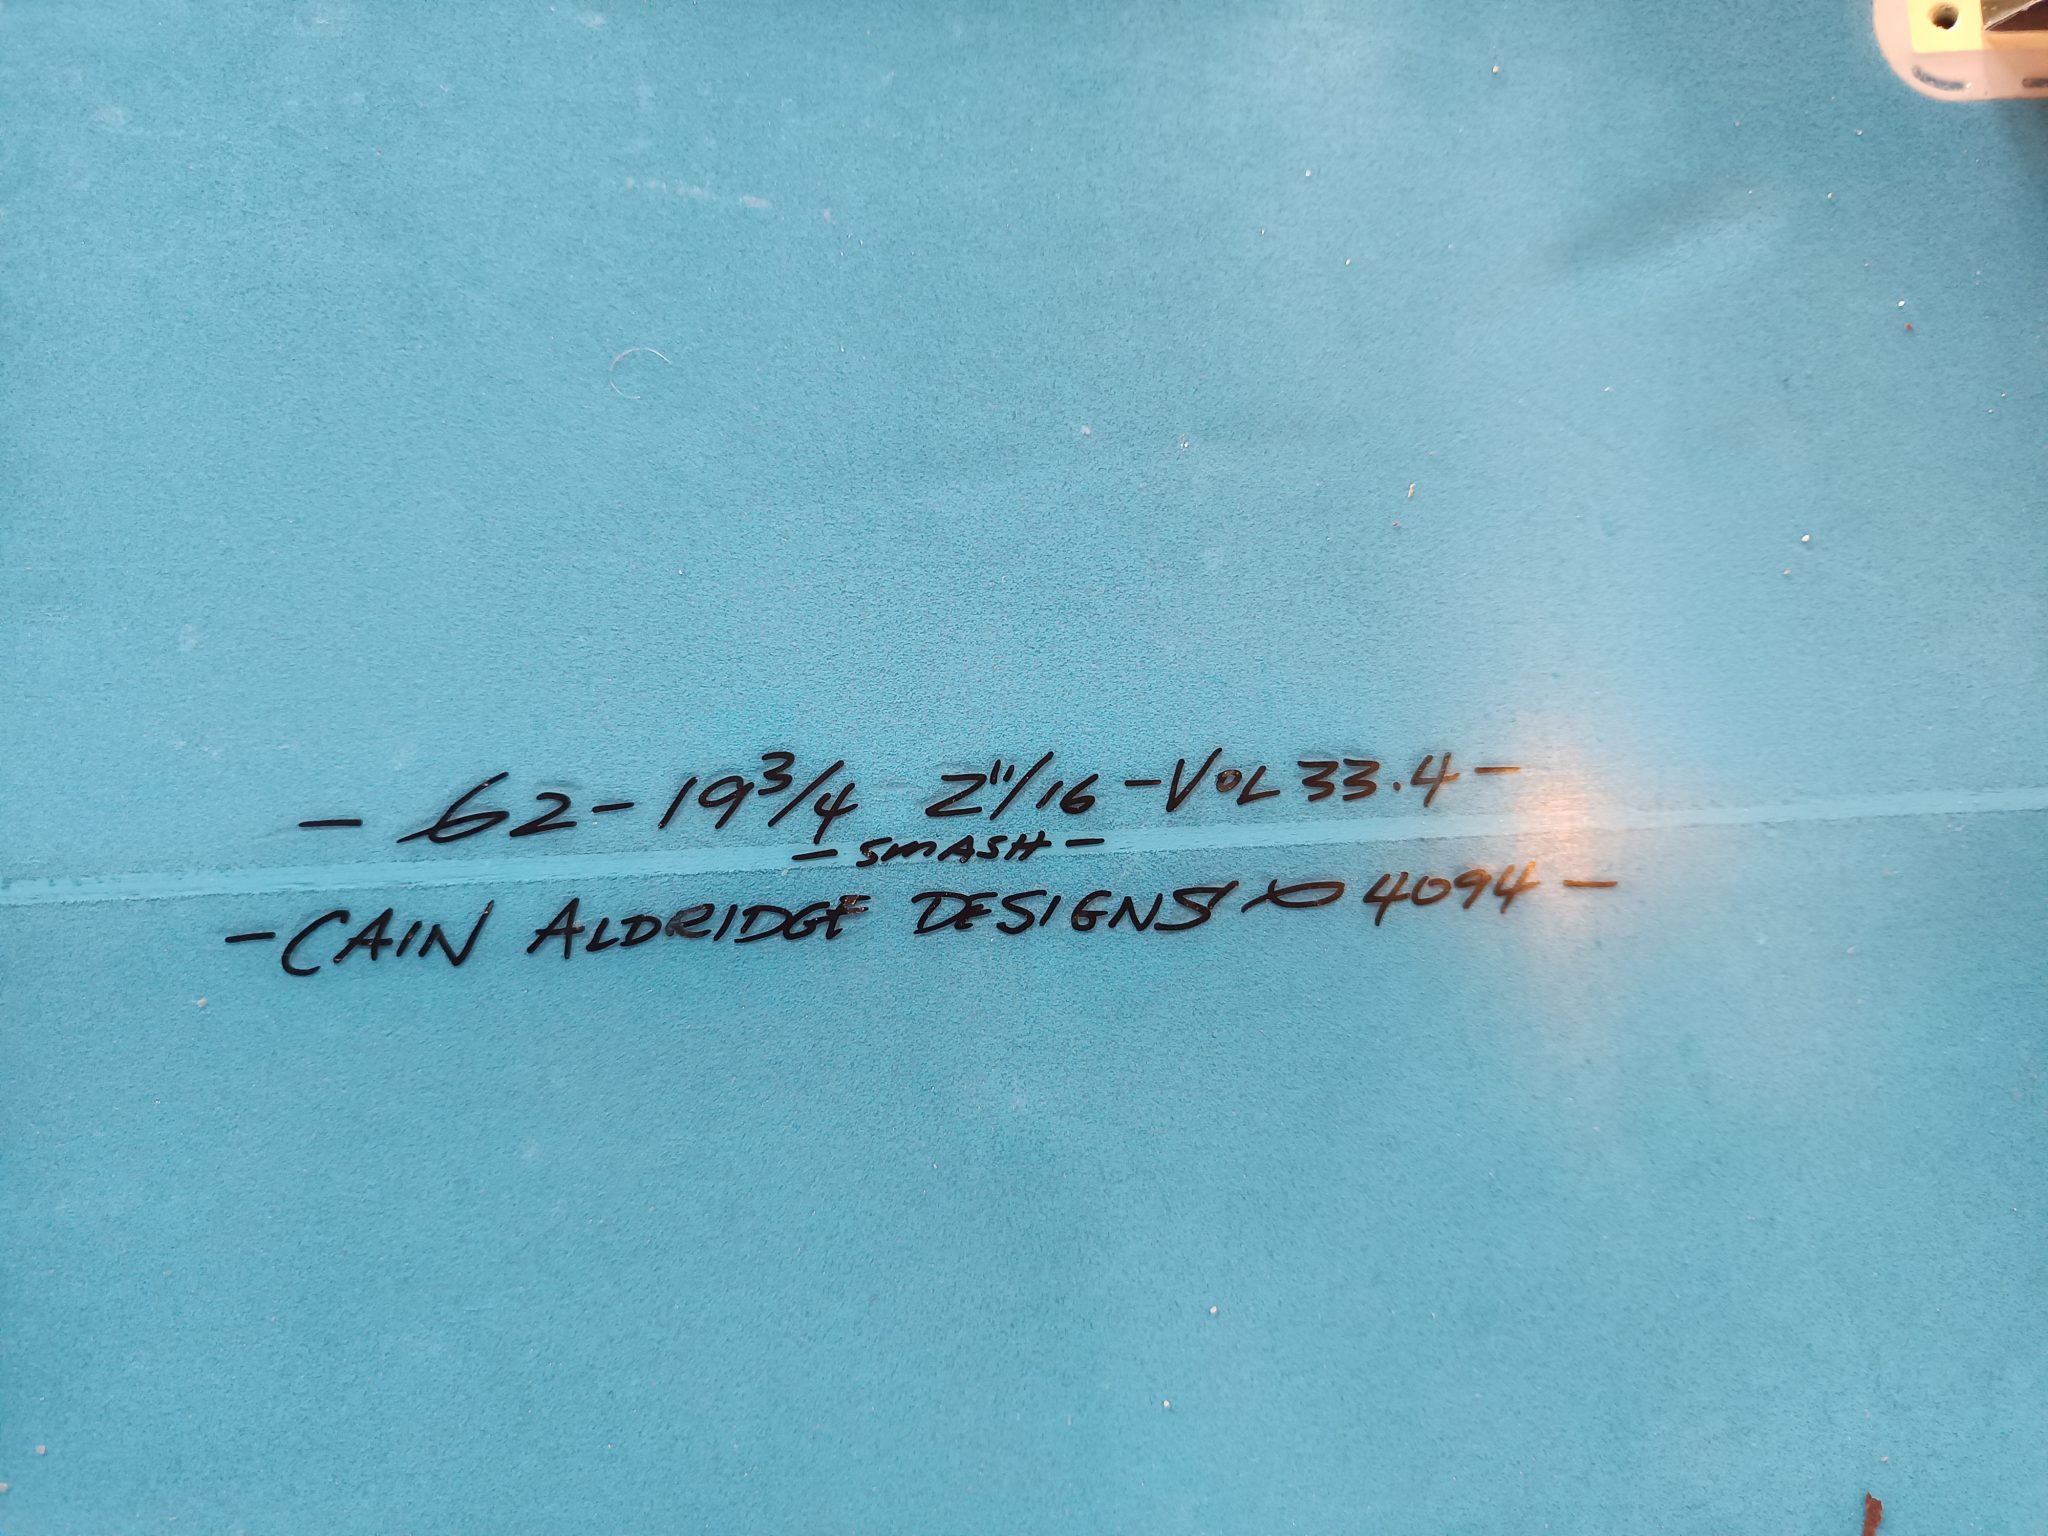 - 62 - 19 3/4 2 11/16 - VOL 33.4 -
- SMASH -
- CAIN ALDRIDGE DESIGNS 4094 -